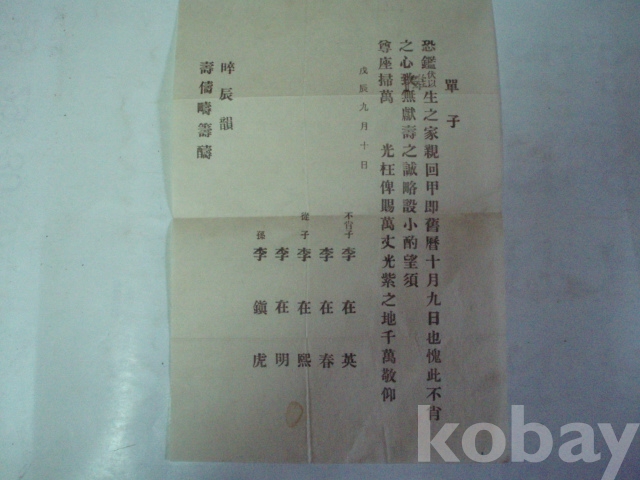 單子
恐鑑伏以生之家親回甲即舊曆十月九日也愧此不肖
之心敢無獻壽之誠略設小酌望須
尊座掃萬 光枉俾賜萬丈光紫之地千萬敬仰
戊辰九月十日
不肖子 李在英
李在春
從子 李在熙
李在明
孫 李鎭虎
晬辰韻
壽儔疇籌醻
kobay